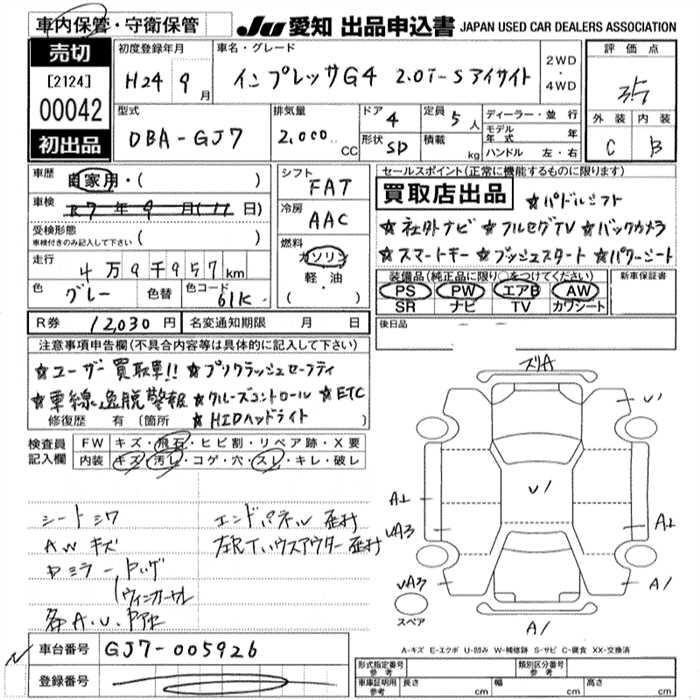 車内保管・守衛保管
JU 愛知 出品申込書 JAPAN USED CAR DEALERS ASSOCIATION
売切
[2124]
00042
初出品
初度登録年月
H24 9月
車名・グレード
インプレッサG4 2.0i-Sアイサイト
2WD
・
4WD
評価点
3.5
外装 内装
C B
型式
DBA-GJ7
排気量
2,000 CC
ドア 4
形状 SD
定員 5人
積載 kg
ディーラー・並行
モデル年式 年
ハンドル 左・右
車歴
自家用・( )
車検
R7年9月(11日)
受検形態
車検付きのみ記入して下さい ( )
走行
4万9千957km
色 グレー 色替 色コード 61K
シフト
FAT
冷房
AAC
燃料
ガソリン
軽・油
( )
セールスポイント(正常に機能するものに限ります)
買取店出品 ☆パドルシフト
☆社外ナビ ☆フルセグTV ☆バックカメラ
☆スマートキー ☆プッシュスタート ☆パワーシート
装備品(純正品に限り○をつけてください)
PS PW エアB AW
SR ナビ TV カワシート
新車保証書
後日品
R券 12,030円 名変通知期限 月 日
注意事項申告欄(不具合内容等は具体的に記入して下さい)
☆ユーザー買取車!! ☆プリクラッシュセーフティ
☆車線逸脱警報 ☆クルーズコントロール ☆ETC
修復歴 有(箇所 ☆HIDヘッドライト
検査員
記入欄
FW キズ・飛石・ヒビ割・リペア跡・X要
内装 キズ・汚レ・コゲ・穴・スレ・キレ・破レ
シートシワ
エンドパネル歪村
AWキズ
ズリA
U1
U1
A1
UA3
A1
UA3
A1
A1
スペア
A-キズ E-エクボ U-凹み W-補修跡 S-サビ C-腐食 XX-交換済
車台番号 GJ7-005926
登録番号
形式指定番号
参考
類別区分番号
参考
車庫証明用
参考
長さ cm 幅 cm 高さ cm